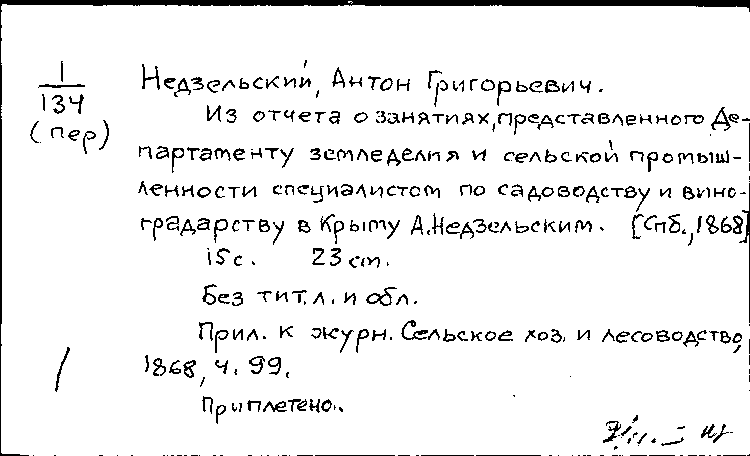 1
134
(пер)
Недзельский, Антон Григорьевич.
Из отчета о занятиях, представленного Де-
партаменту земледелия и сельской промыш-
ленности специалистом по садоводству и вино-
градарству в Крыму А.Недзельским. [Спб., 1868]
15 с. 23 см.
Без тит.л. и обл.
Прил. к журн. Сельское хоз. и лесоводство,
1868, ч. 99.
Приплетено.